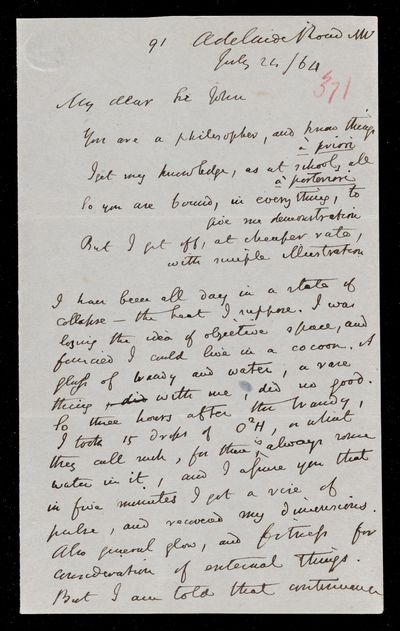 91 Adelaide Road NW
July 24/64
371
My dear Sir John
You are a philosopher, and know things
à priori
I get my knowledge, as at school, all
à posteriori
So you are bound, in everything, to
give me demonstration
But I get off, at cheaper rate,
with simple illustration
I have been all day in a state of
collapse — the heat I suppose. I was
losing the idea of objective space, and
fancied I could live in a cocoon. A
glass of brandy and water, a rare
thing, did with me, did no good.
So three hours after the brandy,
I took 15 drops of O²H, or what
they call such, for there is always some
water in it, and I assure you that
in five minutes I got a rise of
pulse, and recovered my dimensions.
Also general glow, and fitness for
consideration of external things.
But I am told that continuance